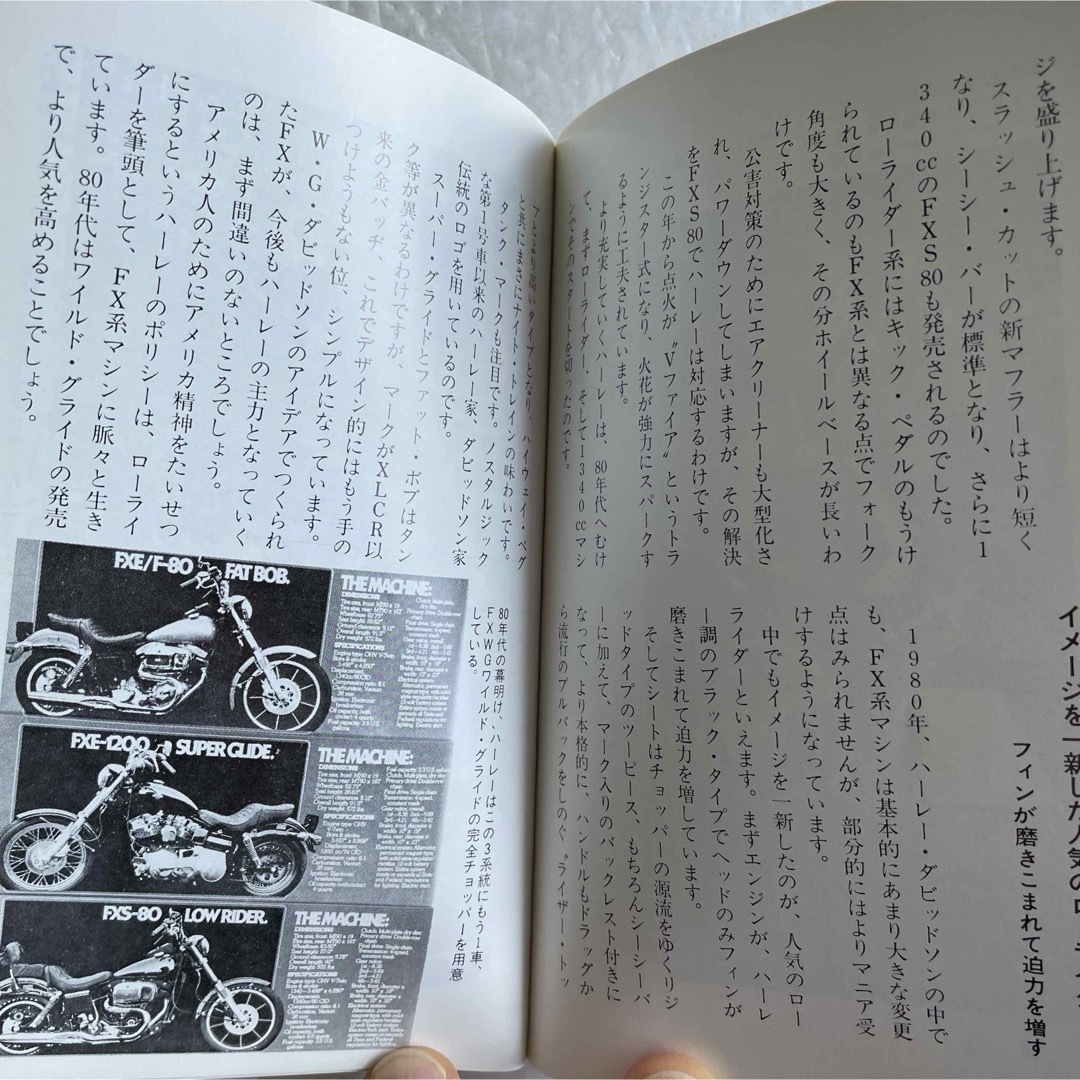 ジを盛り上げます。
スラッシュ・カットの新マフラーはより短く
なり、シーシー・バーが標準となり、さらに1
340ccのFXS80も発売されるのでした。
ローライダー系にはキック・ペダルのもうけ
られているのもFX系とは異なる点でフォーク
角度も大きく、その分ホイールベースが長いわ
けです。
公害対策のためにエアクリーナーも大型化さ
れ、パワーダウンしてしまいますが、その解決
をFXS80でハーレーは対応するわけです。
この年から点火が〝Vファイア〟というトラ
ンジスター式になり、火花が強力にスパークす
るように工夫されています。
より充実していくハーレーは、80年代へむけ
て、まずローライダー、そして1340ccマシ
ンでそのスタートを切ったのです。
イメージを一新した人気のロ
フィンが磨きこまれて迫力を増す
1980年、ハーレー・ダビッドソンの中で
も、FX系マシンは基本的にあまり大きな変更
点はみられませんが、部分的にはよりマニア受
けするようになっています。
中でもイメージを一新したのが、人気のロー
ライダーといえます。まずエンジンが、ハーレ
ー調のブラック・タイプでヘッドのみフィンが
磨きこまれて迫力を増しています。
そしてシートはチョッパーの源流をゆくリジ
ッドタイプのツーピース、もちろんシーシーバ
ーに加えて、マーク入りのバックレスト付きに
なって、より本格的に、ハンドルもドラッグか
ら流行のプルバックをしのぐ〝ライザー・トッ
プとより高いタイプとなり、ハイウェイ・ペグ
と共にまさにナイト・トレインの味わいです。
タンク・マークも注目です。ノスタルジック
な第1号車以来のハーレー家、ダビッドソン家
伝統のロゴを用いているのです。
スーパー・グライドとファット・ボブはタン
ク等が異なるわけですが、マークがXLCR以
来の金バッヂ、これでデザイン的にはもう手の
つけようもない位、シンプルになっています。
W・G・ダビッドソンのアイデアでつくられ
たFXが、今後もハーレーの主力となっていく
のは、まず間違いのないところでしょう。
アメリカ人のためにアメリカ精神をたいせつ
にするというハーレーのポリシーは、ローライ
ダーを筆頭として、FX系マシンに脈々と生き
ています。80年代はワイルド・グライドの発売
で、より人気を高めることでしょう。
80年代の幕明け、ハーレーはこの3系統にもう1車、
FXWGワイルド・グライドの完全チョッパーを用意
している。
FXE/F-80 FAT BOB.
THE MACHINE:
DIMENSIONS
Tire size, front M190 x 19
Tire size, rear M190 x 16T
SPECIFICATIONS
Engine type OHV V-Twin
Bore & stroke
Displacement
1340cc/80CID
Compression ratio 8:1
Ignition Electronic
FXE-1200 SUPER GLIDE.
THE MACHINE:
DIMENSIONS
Tire size, front M190 x 19
Tire size, rear M190 x 16T
SPECIFICATIONS
Engine type OHV
V-Twin
Bore & stroke
Displacement
Compression ratio 8:1
FXS-80 LOW RIDER.
THE MACHINE:
DIMENSIONS
Tire size, front M190 x 19
Tire size, rear M190 x 16T
SPECIFICATIONS
Engine type OHV V-Twin
Bore & stroke
Displacement
Compression ratio 8:1
Ignition Electronic